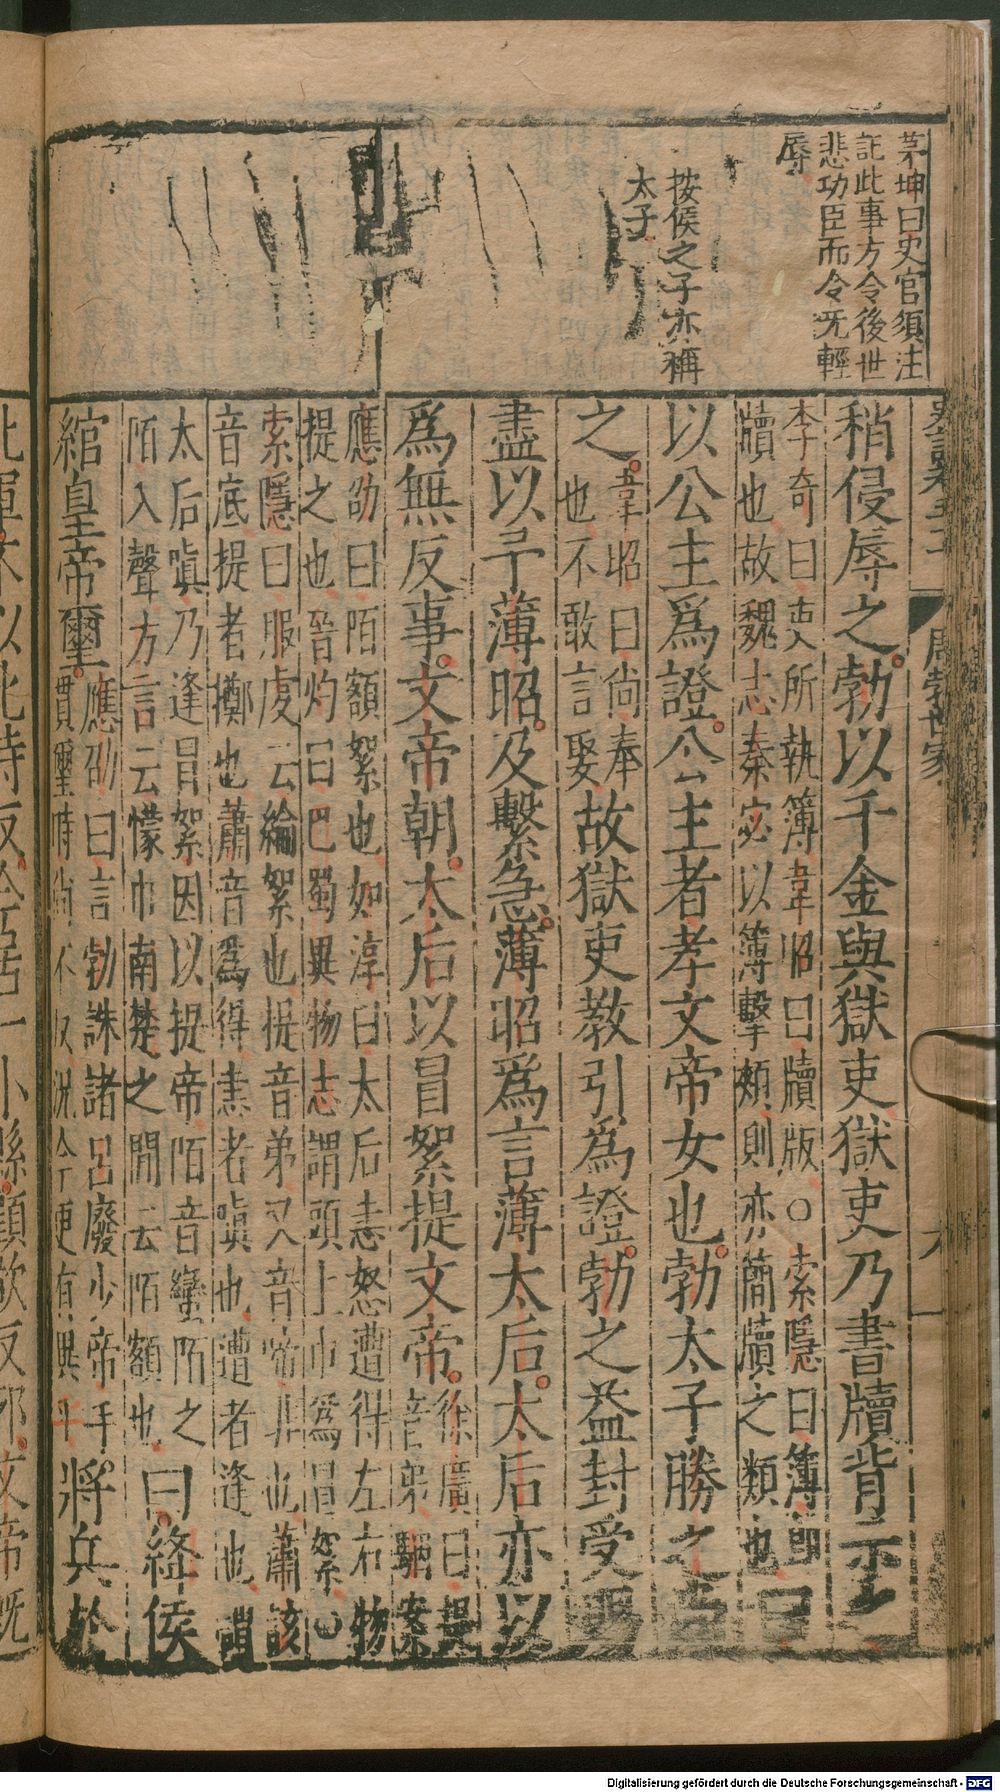 茅坤曰史官須注
託此事方令後世
悲功臣而令旡輕
辱
按侯之子亦稱
太子
周勃世家
稍侵辱之勃以千金與獄吏獄吏乃書牘背示之
李奇曰吏所執簿韋昭曰牘版○索隱曰簿即
牘也故魏志秦宓以簿擊頰則亦簡牘之類也
曰
以公主爲證公主者孝文帝女也勃太子勝之尚
之
韋昭曰尚奉
也不敢言娶
故獄吏教引爲證勃之益封受賜
盡以予薄昭及繫急薄昭爲言薄太后太后亦以
爲無反事文帝朝太后以冒絮提文帝
徐廣曰提
音弟駰案
應劭曰陌額絮也如淳曰太后恚怒遭得左右物
提之也晉灼曰巴蜀異物志謂頭上巾爲冒絮○
索隱曰服虔云綸絮也提音弟又音啼非也蕭該
音底提者擲也蕭音爲得恚者嗔也遭者逢也謂
太后嗔乃逢冒絮因以提帝陌音蠻陌之
陌入聲方言云幪巾南楚之間云陌額也
曰絳侯
綰皇帝璽
應劭曰言勃誅諸呂廢少帝手
貫璽時尚不反況今更有異乎
將兵於
北軍不以此時反今居一小縣顧欲反邪文帝既
Digitalisierung gefördert durch die Deutsche Forschungsgemeinschaft - DFG